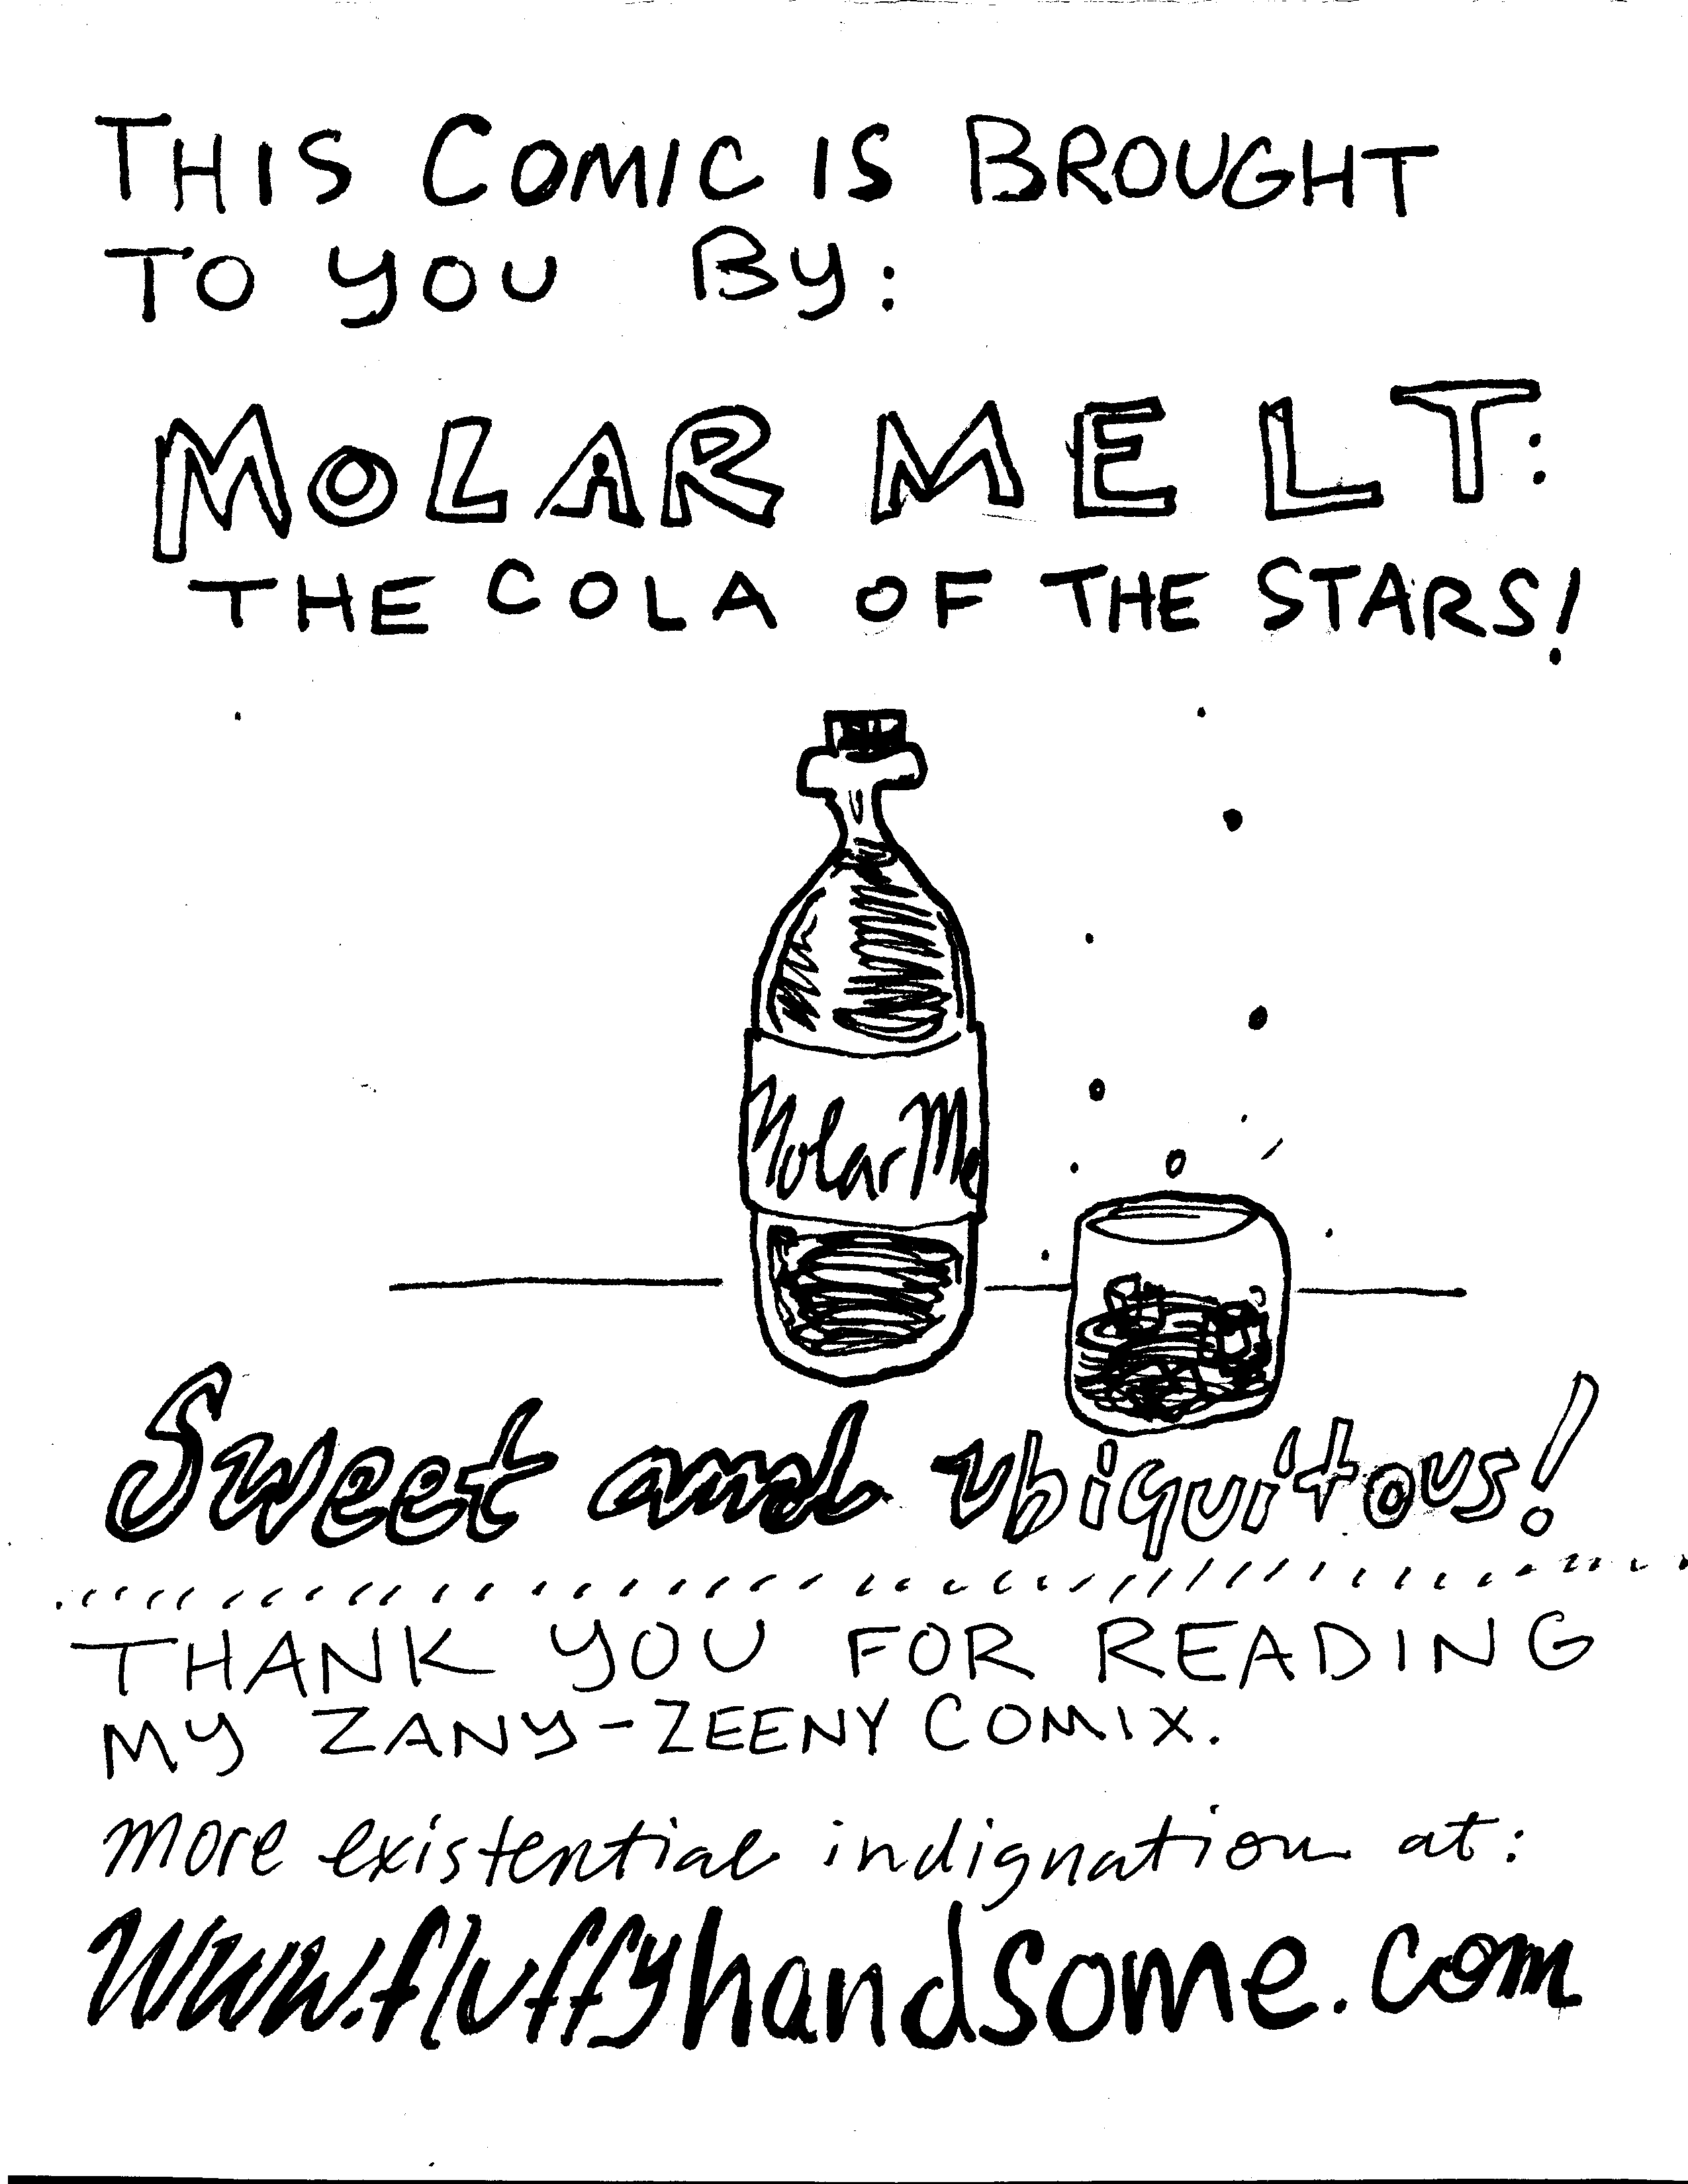 THIS COMIC IS BROUGHT
TO YOU BY:
MOLAR MELT:
THE COLA OF THE STARS!
Molar Me
Sweet and ubiquitous!
THANK YOU FOR READING
MY ZANY-ZEENY COMIX.
more existential indignation at:
www.fluffyhandsome.com